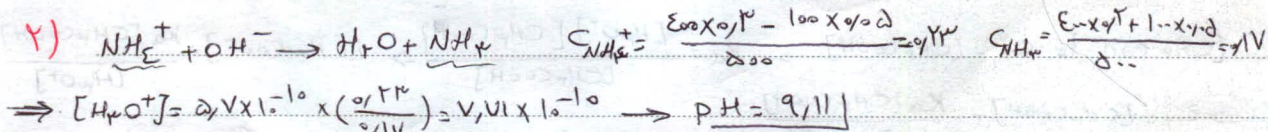 ۲) NH₄⁺ + OH⁻ → H₂O + NH₃ C_NH₄⁺ = (۴۰۰×۰٫۳ − ۱۰۰×۰٫۰۵)/۵۰۰ = ۰٫۲۳ C_NH₃ = (۴۰۰×۰٫۲ + ۱۰۰×۰٫۰۵)/۵۰۰ = ۰٫۱۷
⇒ [H₃O⁺] = ۵٫۷×۱۰⁻¹⁰ × (۰٫۲۳/۰٫۱۷) = ۷٫۷۱×۱۰⁻¹⁰ → pH = ۹٫۱۱